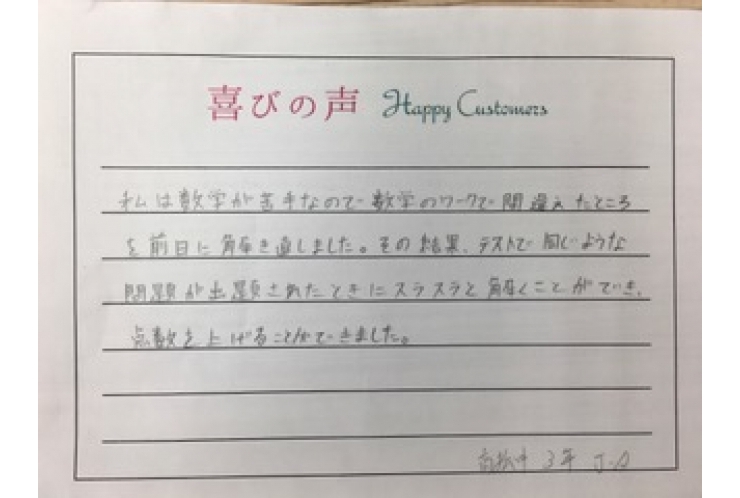 喜びの声 Happy Customers
私は数学が苦手なので数学のワークで間違えたところ
を前日に解き直しました。その結果、テストで同じような
問題が出題されたときにスラスラと解くことができ、
点数を上げることができました。
高松中 3年 J.A